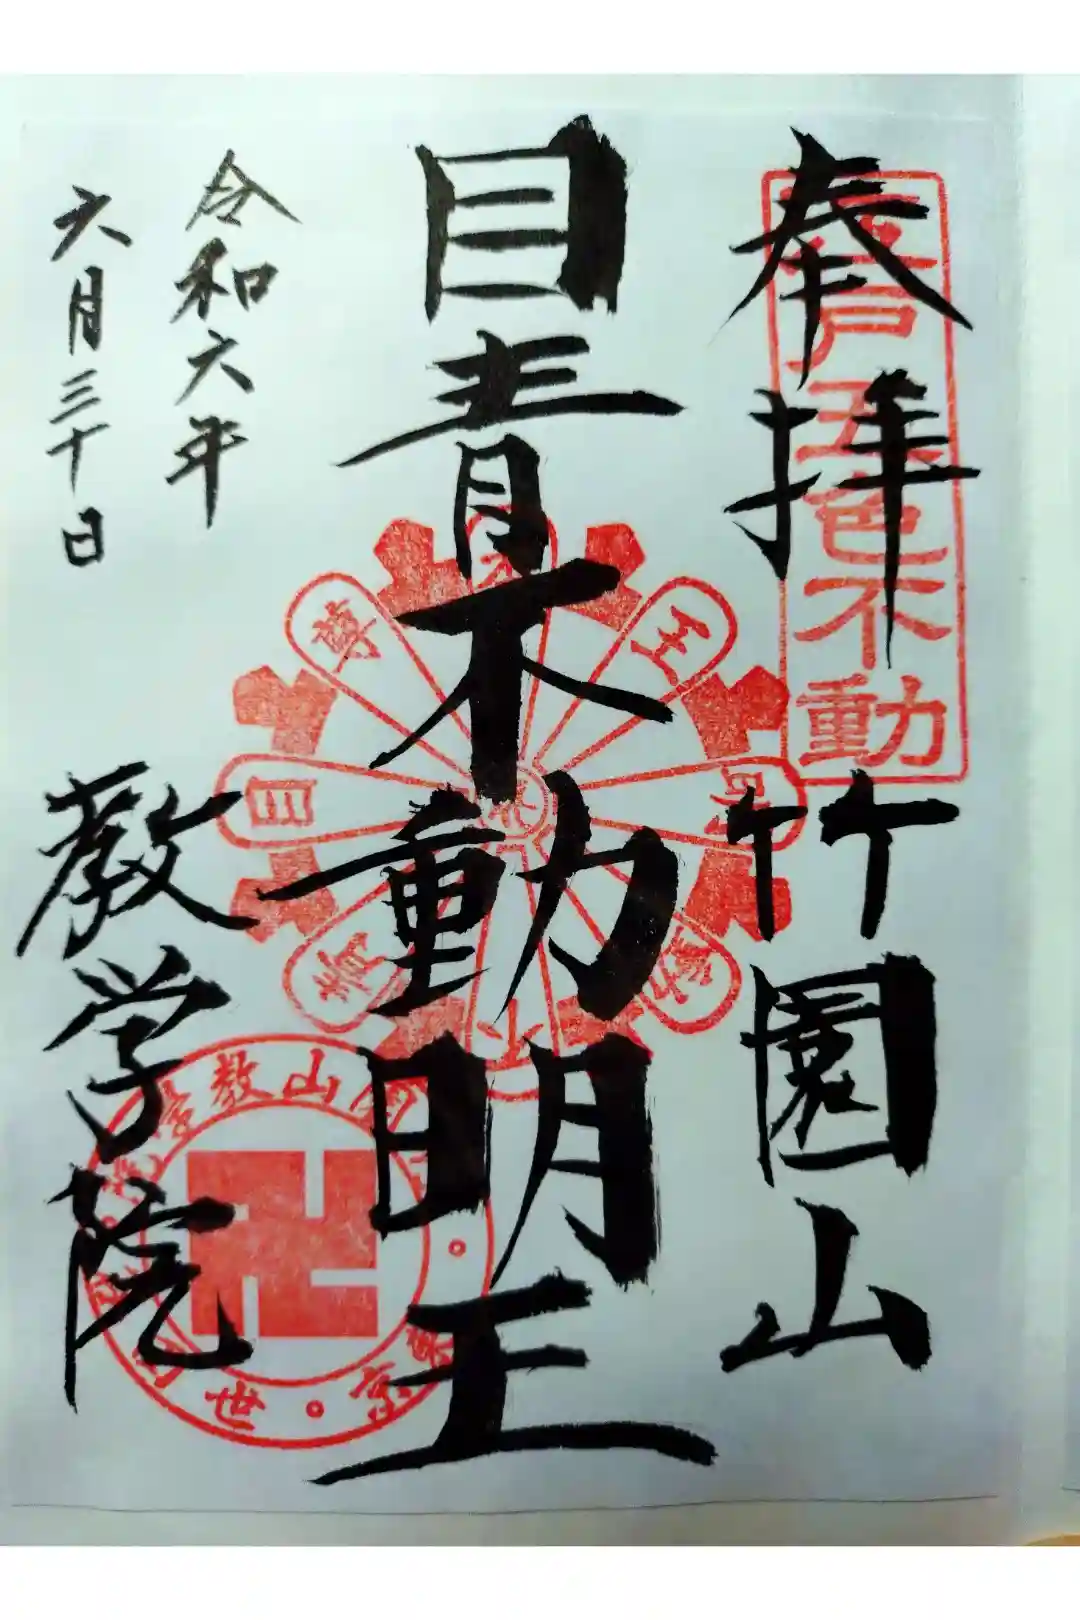 奉拝
竹園山
江戸五色不動
目青不動明王
令和六年
六月三十日
教学院